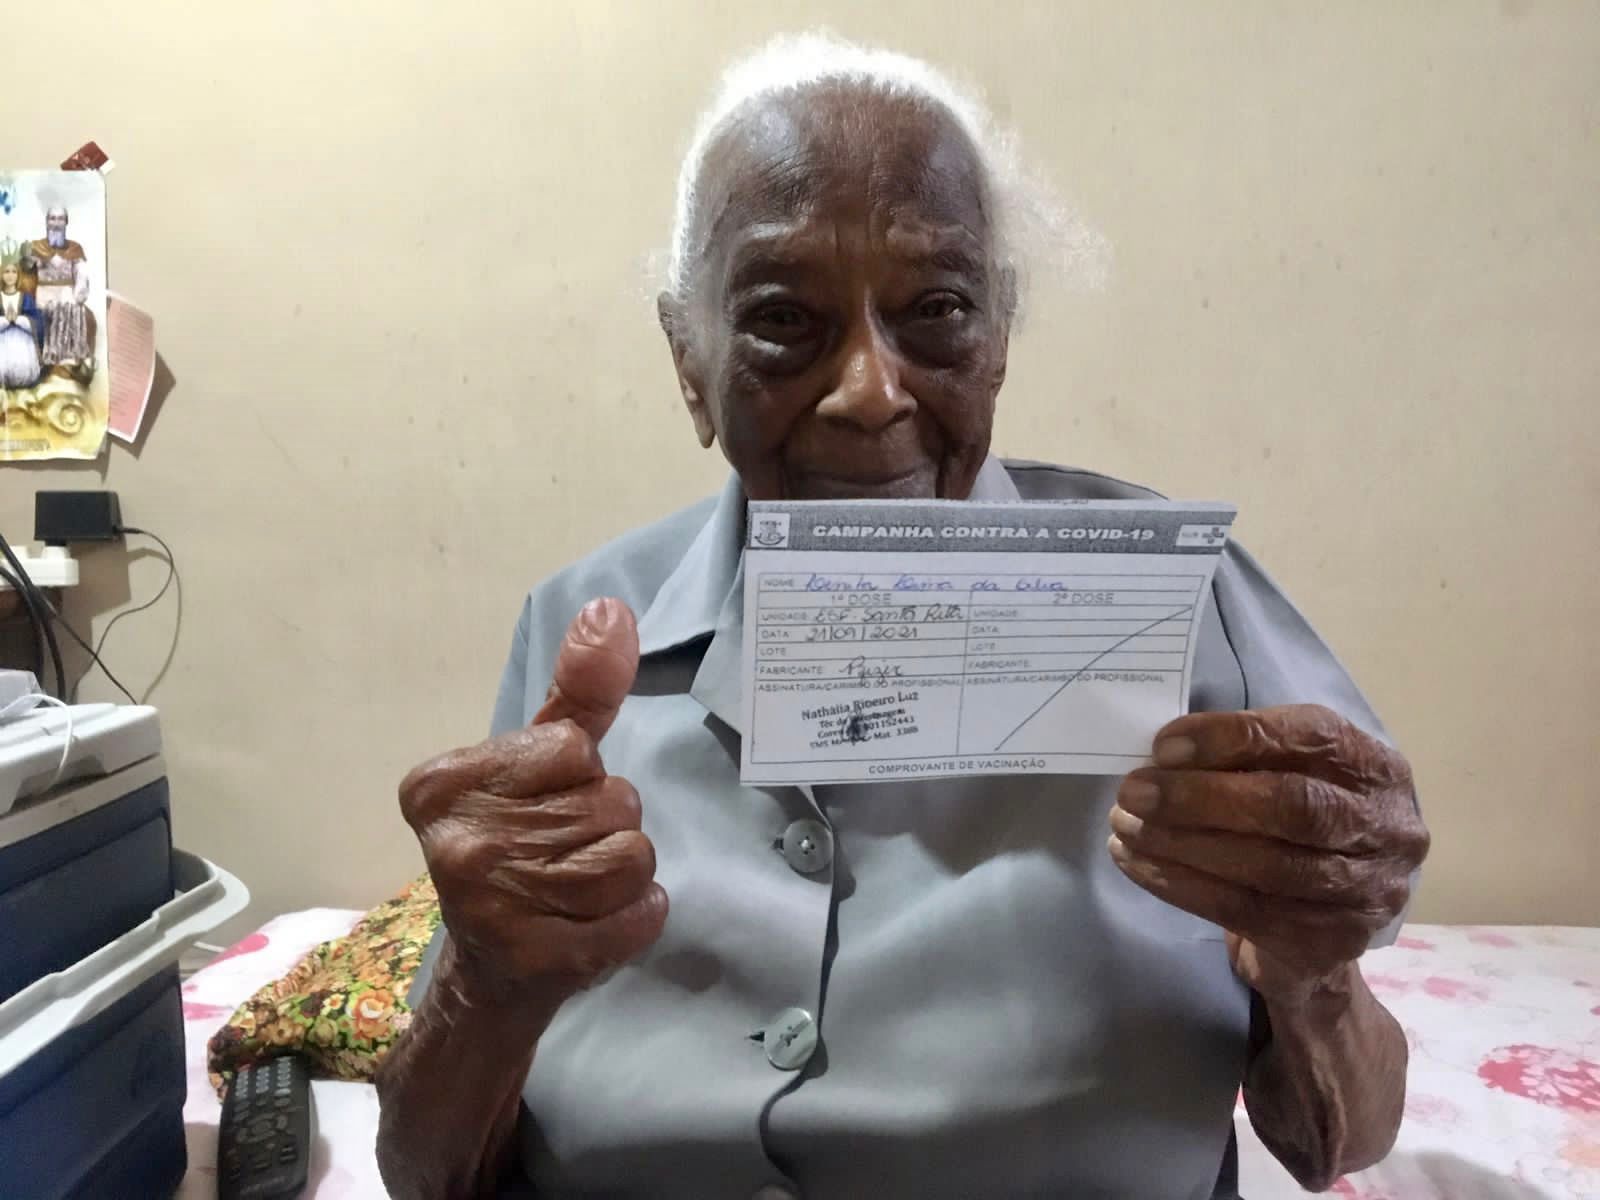 CAMPANHA CONTRA A COVID-19
NOME: da
1ª DOSE 2ª DOSE
UNIDADE: ESF. Santa Rita UNIDADE:
DATA: 21/09/2021 DATA:
LOTE: LOTE:
FABRICANTE: Pfizer FABRICANTE:
ASSINATURA/CARIMBO DO PROFISSIONAL ASSINATURA/CARIMBO DO PROFISSIONAL
Nathália Ribeiro Luz
Mat. 3388
COMPROVANTE DE VACINAÇÃO